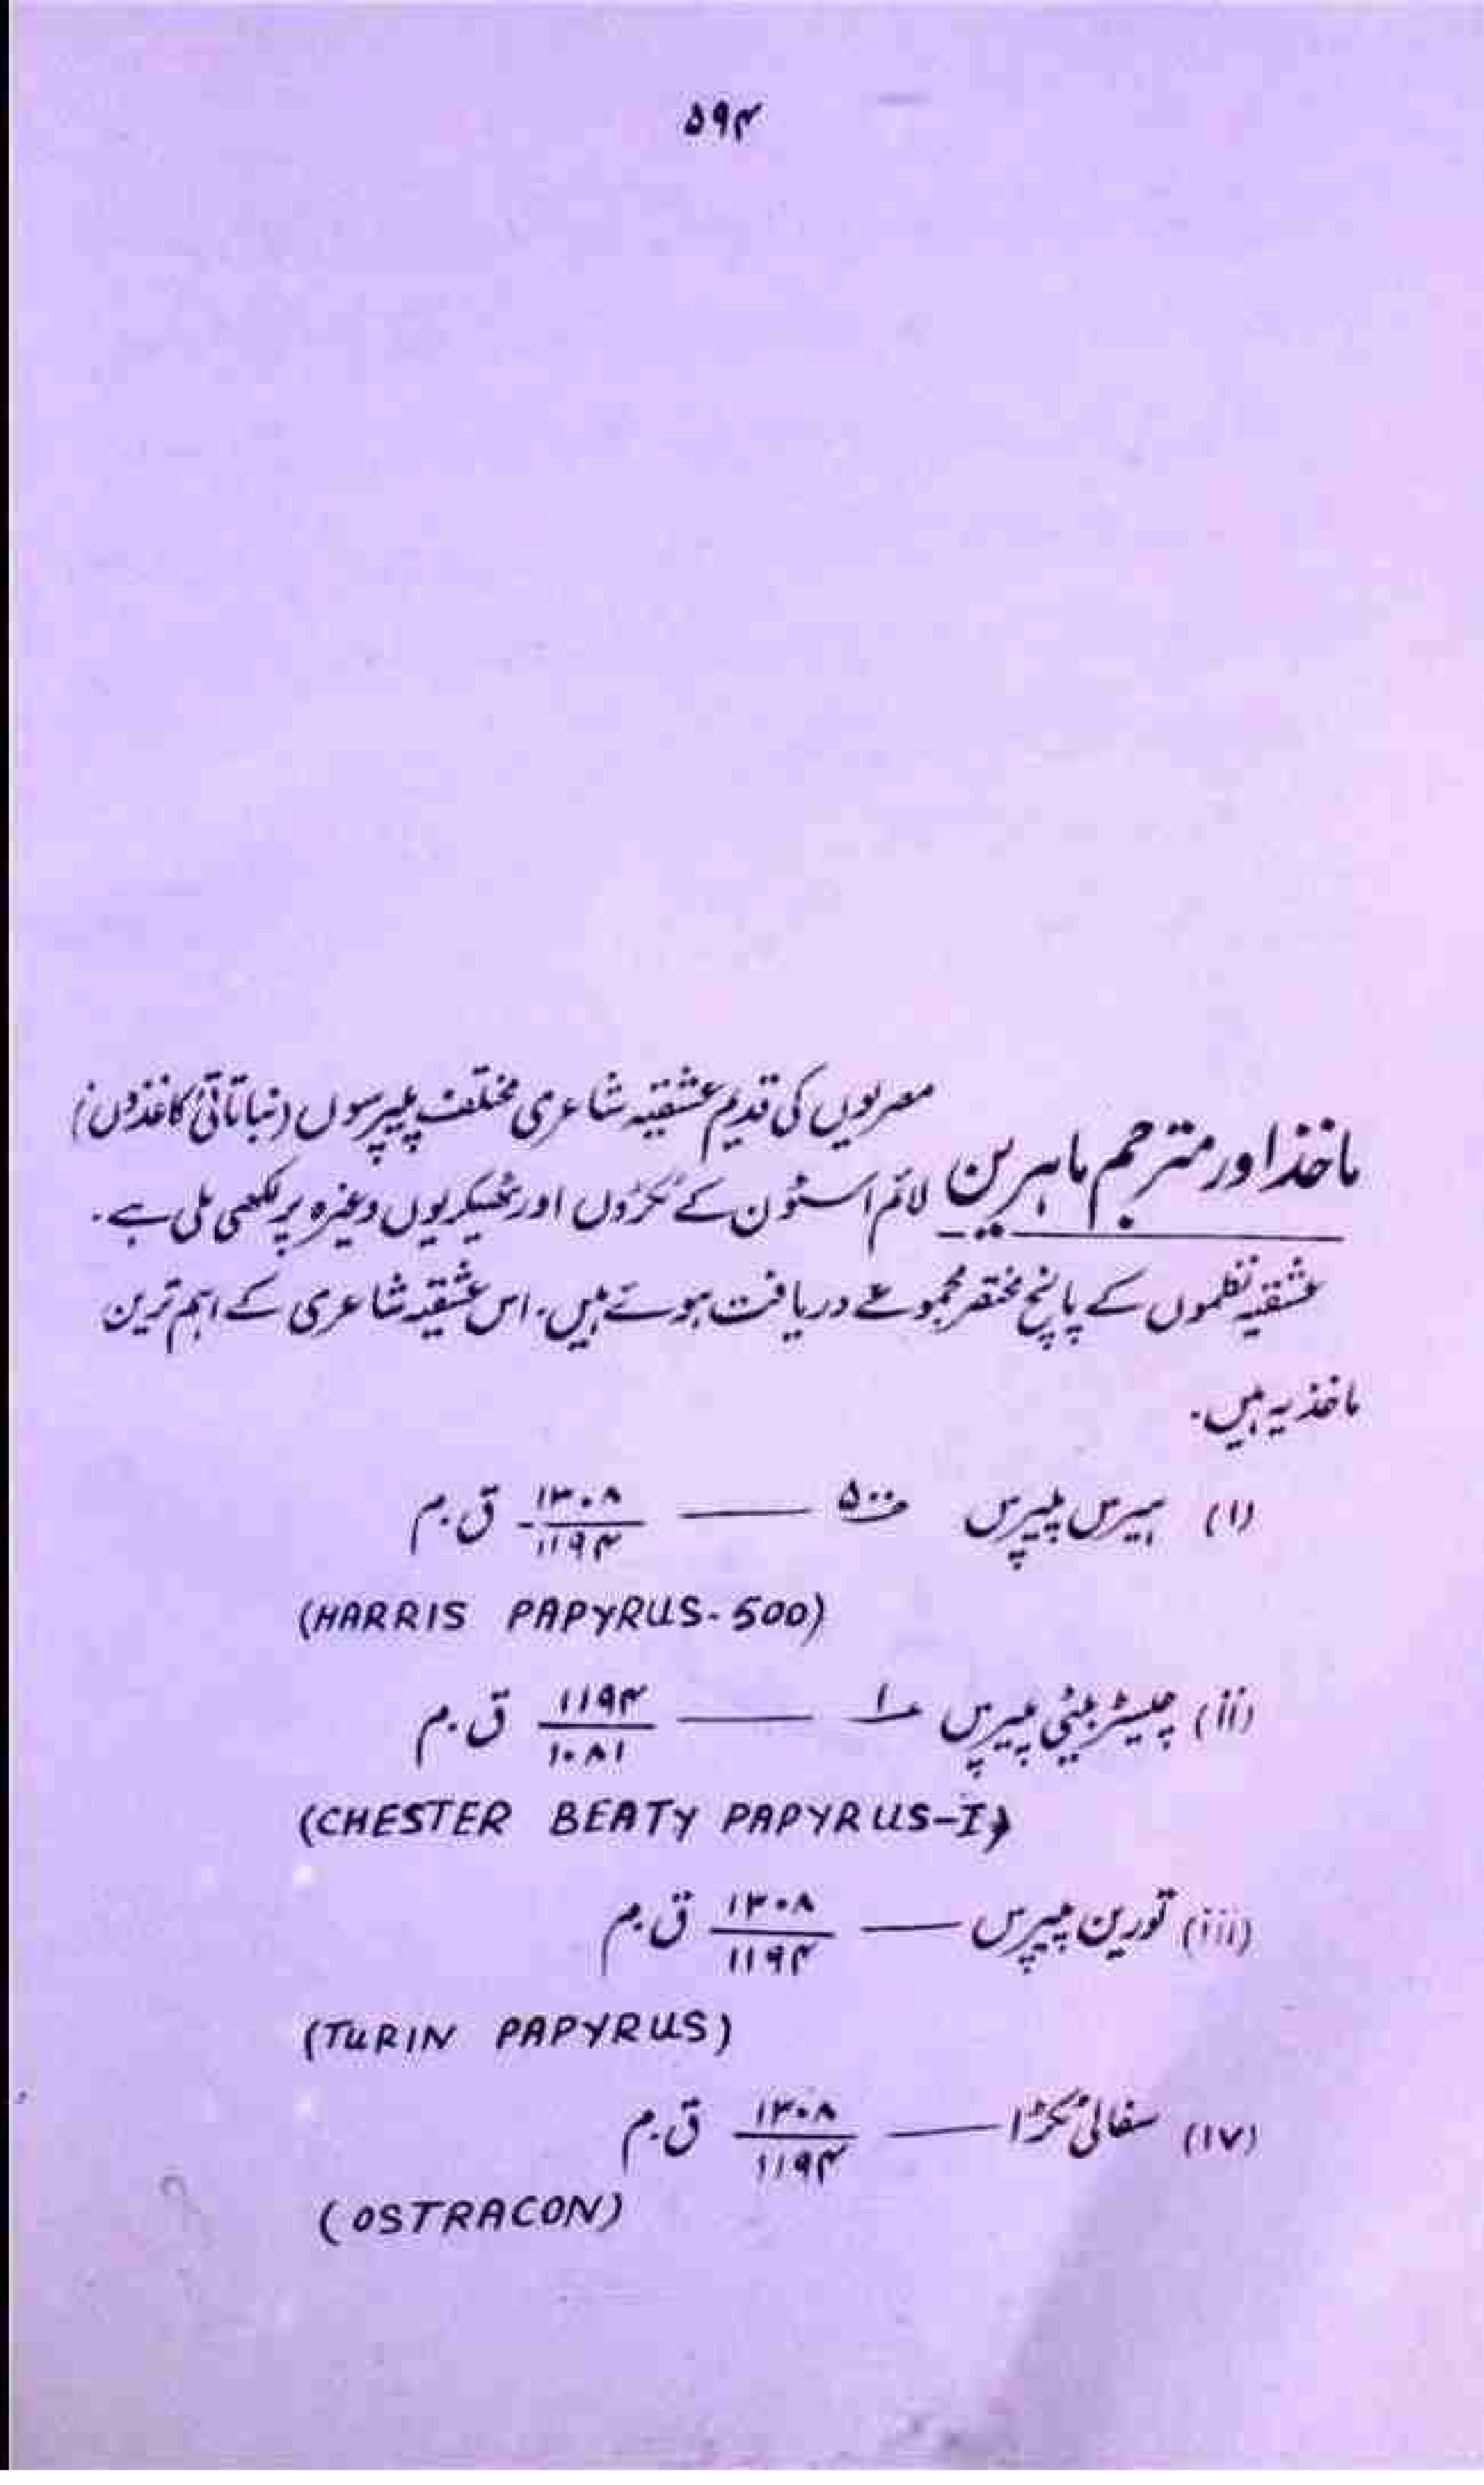 ۵۹۴
ماخذ اور مترجم ماہرین
مصریوں کی قدیم عشقیہ شاعری مختلف پیپرسوں (نباتاتی کاغذوں)
لائم اسٹون کے ٹکڑوں اور ٹھیکریوں وغیرہ پر لکھی ملی ہے۔
عشقیہ نظموں کے پانچ مختصر مجموعے دریافت ہوئے ہیں۔ اس عشقیہ شاعری کے اہم ترین
ماخذ یہ ہیں۔
(i) ہیرس پیپرس ۵۰۰ —— ۱۳۰۸/۱۱۹۴ ق۔م
(HARRIS PAPYRUS-500)
(ii) چیسٹر بیٹی پیپرس ۱ —— ۱۱۹۴/۱۰۸۱ ق۔م
(CHESTER BEATY PAPYRUS-I)
(iii) تورین پیپرس —— ۱۳۰۸/۱۱۹۴ ق۔م
(TURIN PAPYRUS)
(iv) سفالی ٹکڑا —— ۱۳۰۸/۱۱۹۴ ق۔م
(OSTRACON)